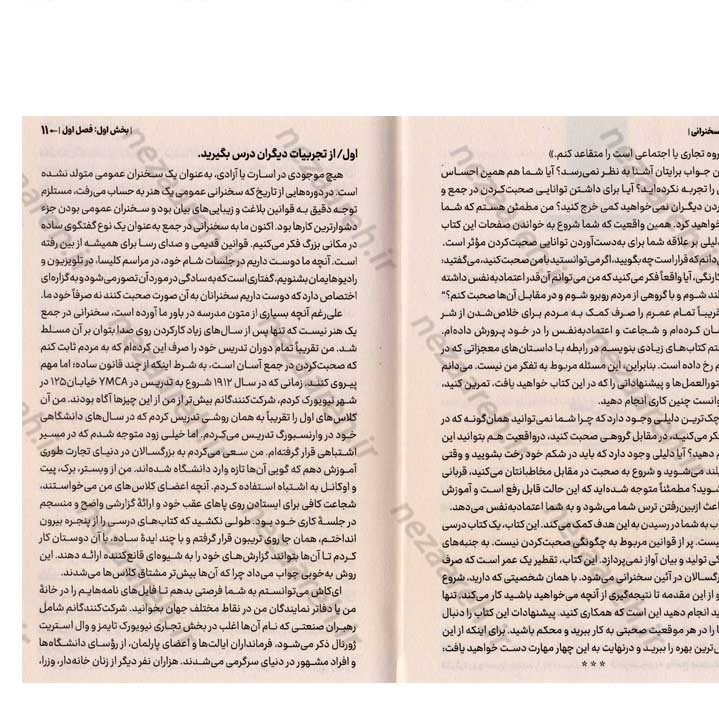 سخنرانی |
روه تجاری یا اجتماعی است را متقاعد کنم.»
ن جواب برایتان آشنا به نظر نمی‌رسد؟ آیا شما هم همین احساس
را تجربه نکرده‌اید؟ آیا برای داشتن توانایی صحبت‌کردن در جمع و
ردن دیگران نمی‌خواهید کمی خرج کنید؟ من مطمئن هستم که شما
خواهید کرد. همین واقعیت که شما شروع به خواندن صفحات این کتاب
دلیلی بر علاقه شما برای به‌دست‌آوردن توانایی صحبت‌کردن مؤثر است.
دانم که قرار است چه بگویید، اگر می‌توانستید با من صحبت کنید، می‌گفتید:
کارنگی، آیا واقعاً فکر می‌کنید که من می‌توانم آن‌قدر اعتمادبه‌نفس داشته
لند شوم و با گروهی از مردم روبرو شوم و در مقابل آن‌ها صحبت کنم؟"
قریباً تمام عمرم را صرف کمک به مردم برای خلاص‌شدن از شر
سان کرده‌ام و شجاعت و اعتمادبه‌نفس را در خود پرورش داده‌ام.
نم کتاب‌های زیادی بنویسم در رابطه با داستان‌های معجزاتی که در
م رخ داده است. بنابراین، این مسئله مربوط به تفکر من نیست. می‌دانم
تورالعمل‌ها و پیشنهاداتی را که در این کتاب خواهید یافت، تمرین کنید،
وانست چنین کاری انجام دهید.
چک‌ترین دلیلی وجود دارد که چرا شما نمی‌توانید همان‌گونه که در
کر می‌کنید، در مقابل گروهی صحبت کنید، درواقعیت هم بتوانید این
م دهید؟ آیا دلیلی وجود دارد که باید در شکم خود رخت بشویید و وقتی
لند می‌شوید و شروع به صحبت در مقابل مخاطبانتان می‌کنید، قربانی
شوید؟ مطمئناً متوجه شده‌اید که این حالت قابل رفع است و آموزش
باعث ازبین‌رفتن ترس شما می‌شود و به شما اعتمادبه‌نفس می‌دهد.
ب به شما در رسیدن به این هدف کمک می‌کند. این کتاب، یک کتاب درسی
یست. پر از قوانین مربوط به چگونگی صحبت‌کردن نیست. به جنبه‌های
کی تولید و بیان آواز نمی‌پردازد. این کتاب، تقطیر یک عمر است که صرف
زرگسالان در آئین سخنرانی می‌شود. با همان شخصیتی که دارید، شروع
و از این مقدمه تا نتیجه‌گیری از آنچه می‌خواهید باشید کار می‌کند. تنها
ید انجام دهید این است که همکاری کنید. پیشنهادات این کتاب را دنبال
ا را در هر موقعیت صحبتی به کار ببرید و محکم باشید. برای اینکه از این
ترین بهره را ببرید و درنهایت به این چهار مهارت دست خواهید یافت:
* * *
| بخش اول: فصل اول | ← ۱۱
اول/ از تجربیات دیگران درس بگیرید.
هیچ موجودی در اسارت یا آزادی، به‌عنوان یک سخنران عمومی متولد نشده
است. در دوره‌هایی از تاریخ که سخنرانی عمومی یک هنر به حساب می‌رفت، مستلزم
توجه دقیق به قوانین بلاغت و زیبایی‌های بیان بود و سخنران عمومی بودن جزء
دشوارترین کارها بود. اکنون ما به سخنرانی در جمع به‌عنوان یک نوع گفتگوی ساده
در مکانی بزرگ فکر می‌کنیم. قوانین قدیمی و صدای رسا برای همیشه از بین رفته
است. آنچه ما دوست داریم در جلسات شام خود، در مراسم کلیسا، در تلویزیون و
رادیوهایمان بشنویم، گفتاری است که به سادگی در مورد آن تصور می‌شود و به گزاره‌ای
اختصاص دارد که دوست داریم سخنرانان به آن صورت صحبت کنند نه صرفاً خود ما.
علی‌رغم آنچه بسیاری از متون مدرسه در باور ما آورده است، سخنرانی در جمع
یک هنر نیست که تنها پس از سال‌های زیاد کارکردن روی صدا بتوان بر آن مسلط
شد. من تقریباً تمام دوران تدریس خود را صرف این کرده‌ام که به مردم ثابت کنم
که صحبت‌کردن در جمع آسان است، به شرط اینکه از چند قانون ساده؛ اما مهم
پیروی کنند. زمانی که در سال ۱۹۱۲ شروع به تدریس در YMCA خیابان ۱۲۵ در
شهر نیویورک کردم، شرکت‌کنندگانم بیش‌تر از من از این چیزها آگاه بودند. من آن
کلاس‌های اول را تقریباً به همان روشی تدریس کردم که در سال‌های دانشگاهی
خود در وارنسبورگ تدریس می‌کردم. اما خیلی زود متوجه شدم که در مسیر
اشتباهی قرار گرفته‌ام. من سعی می‌کردم به بزرگسالان در دنیای تجارت طوری
آموزش دهم که گویی آن‌ها تازه وارد دانشگاه شده‌اند. من از وبستر، برک، پیت
و اوکانل به اشتباه استفاده کردم. آنچه اعضای کلاس‌های من می‌خواستند،
شجاعت کافی برای ایستادن روی پاهای عقب خود و ارائهٔ گزارشی واضح و منسجم
در جلسهٔ کاری خود بود. طولی نکشید که کتاب‌های درسی را از پنجره بیرون
انداختم، همان جا روی تریبون قرار گرفتم و با چند ایدهٔ ساده، با آن دوستان کار
کردم تا آن‌ها بتوانند گزارش‌های خود را به شیوه‌ای قانع‌کننده ارائه دهند. این
روش به‌خوبی جواب می‌داد چرا که آن‌ها بیش‌تر مشتاق کلاس‌ها می‌شدند.
ای‌کاش می‌توانستم به شما فرصتی بدهم تا فایل‌های نامه‌هایم را در خانهٔ
من یا دفاتر نمایندگان من در نقاط مختلف جهان بخوانید. شرکت‌کنندگانم شامل
رهبران صنعتی که نام آن‌ها اغلب در بخش تجاری نیویورک تایمز و وال استریت
ژورنال ذکر می‌شود، فرمانداران ایالت‌ها و اعضای پارلمان، از رؤسای دانشگاه‌ها
و افراد مشهور در دنیای سرگرمی می‌شدند. هزاران نفر دیگر از زنان خانه‌دار، وزرا،